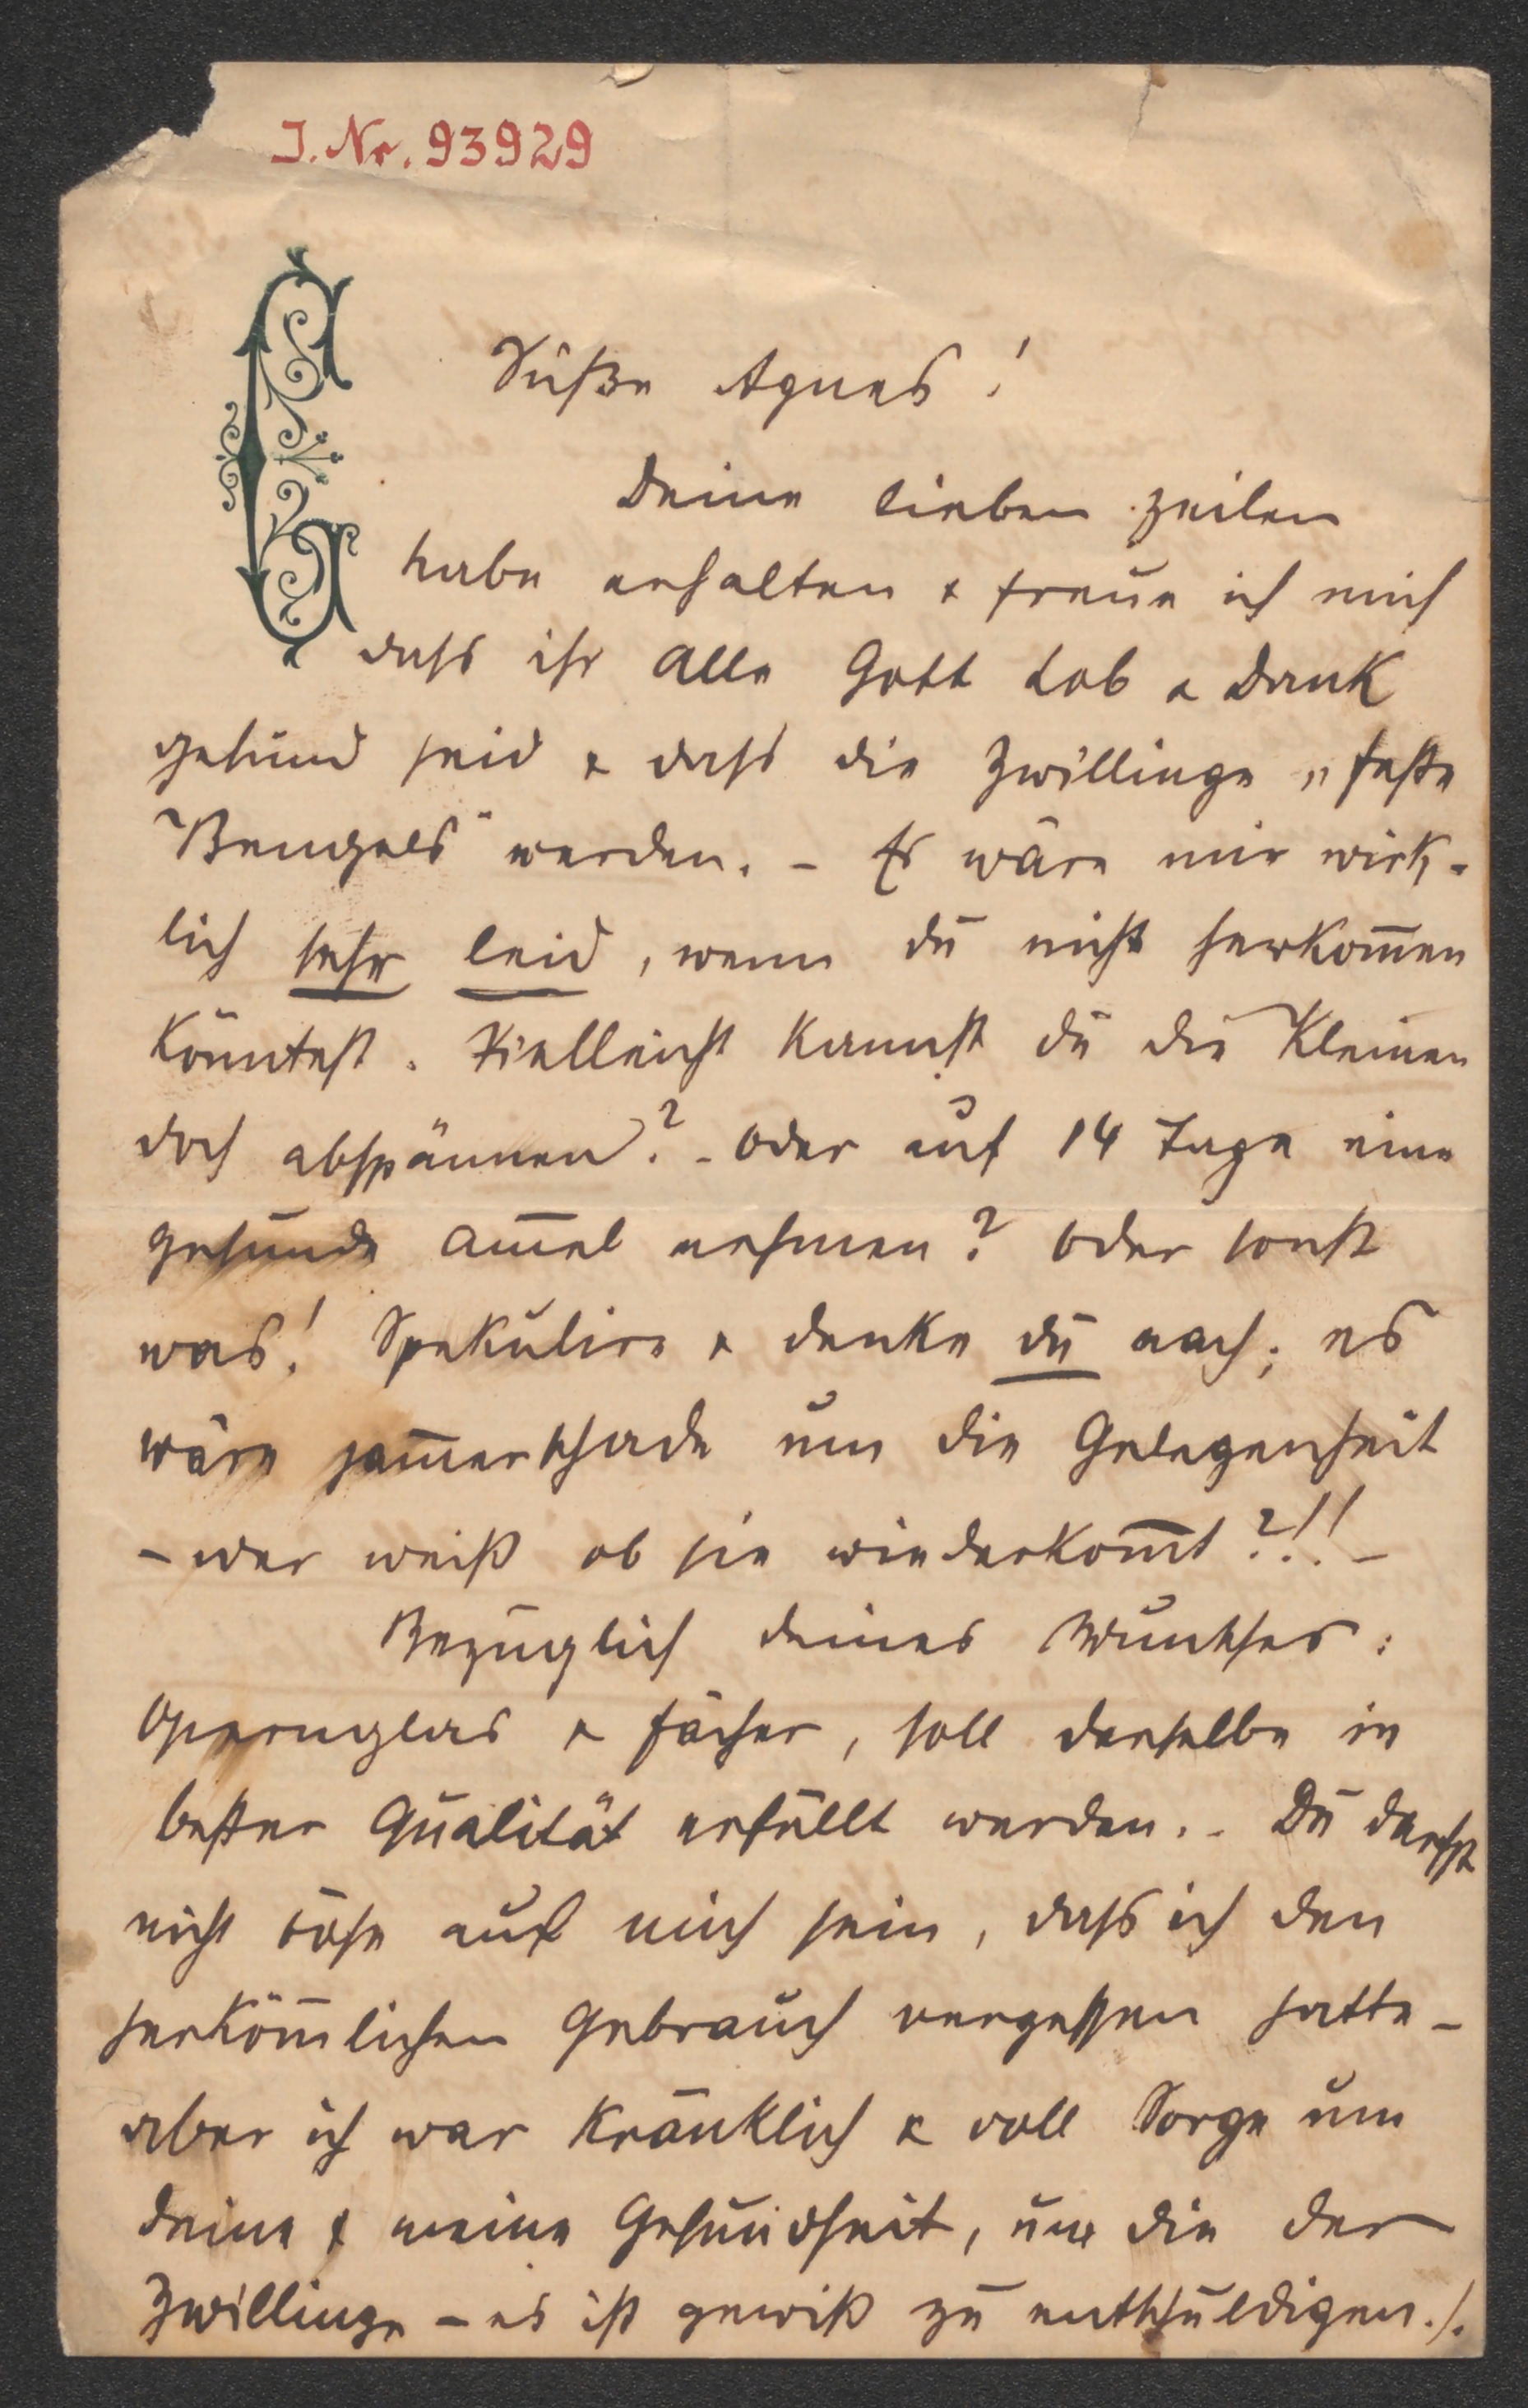 J. Nr. 93929
Süße Agnes!
Deine lieben Zeilen
habe erhalten & freue ich mich
dass ihr alle Gott Lob & Dank
gesund seid & dass die Zwillinge „feste
Bengels“ werden. – Es wäre mir wirk-
lich sehr leid, wenn du nicht herkom̅en
könntest. Vielleicht kannst du die Kleinen
doch abspännen? – Oder auf 14 Tage eine
gesunde Am̅el nehmen? Oder sonst
was! Spekulire & denke du nach; es
wäre jam̅erschade um die Gelegenheit
– wer weiß ob sie wiederkom̅t?!! –
Bezüglich deines Wunsches:
Opernglas & Fächer, soll derselbe in
bester Qualität erfüllt werden. – Du darfst
nicht böse auf mich sein, dass ich den
herköm̅lichen Gebrauch vergessen hatte –
aber ich war kränklich & voll Sorge um
deine & meine Gesundheit, um die der
Zwillinge – es ist gewiß zu entschuldigen./.